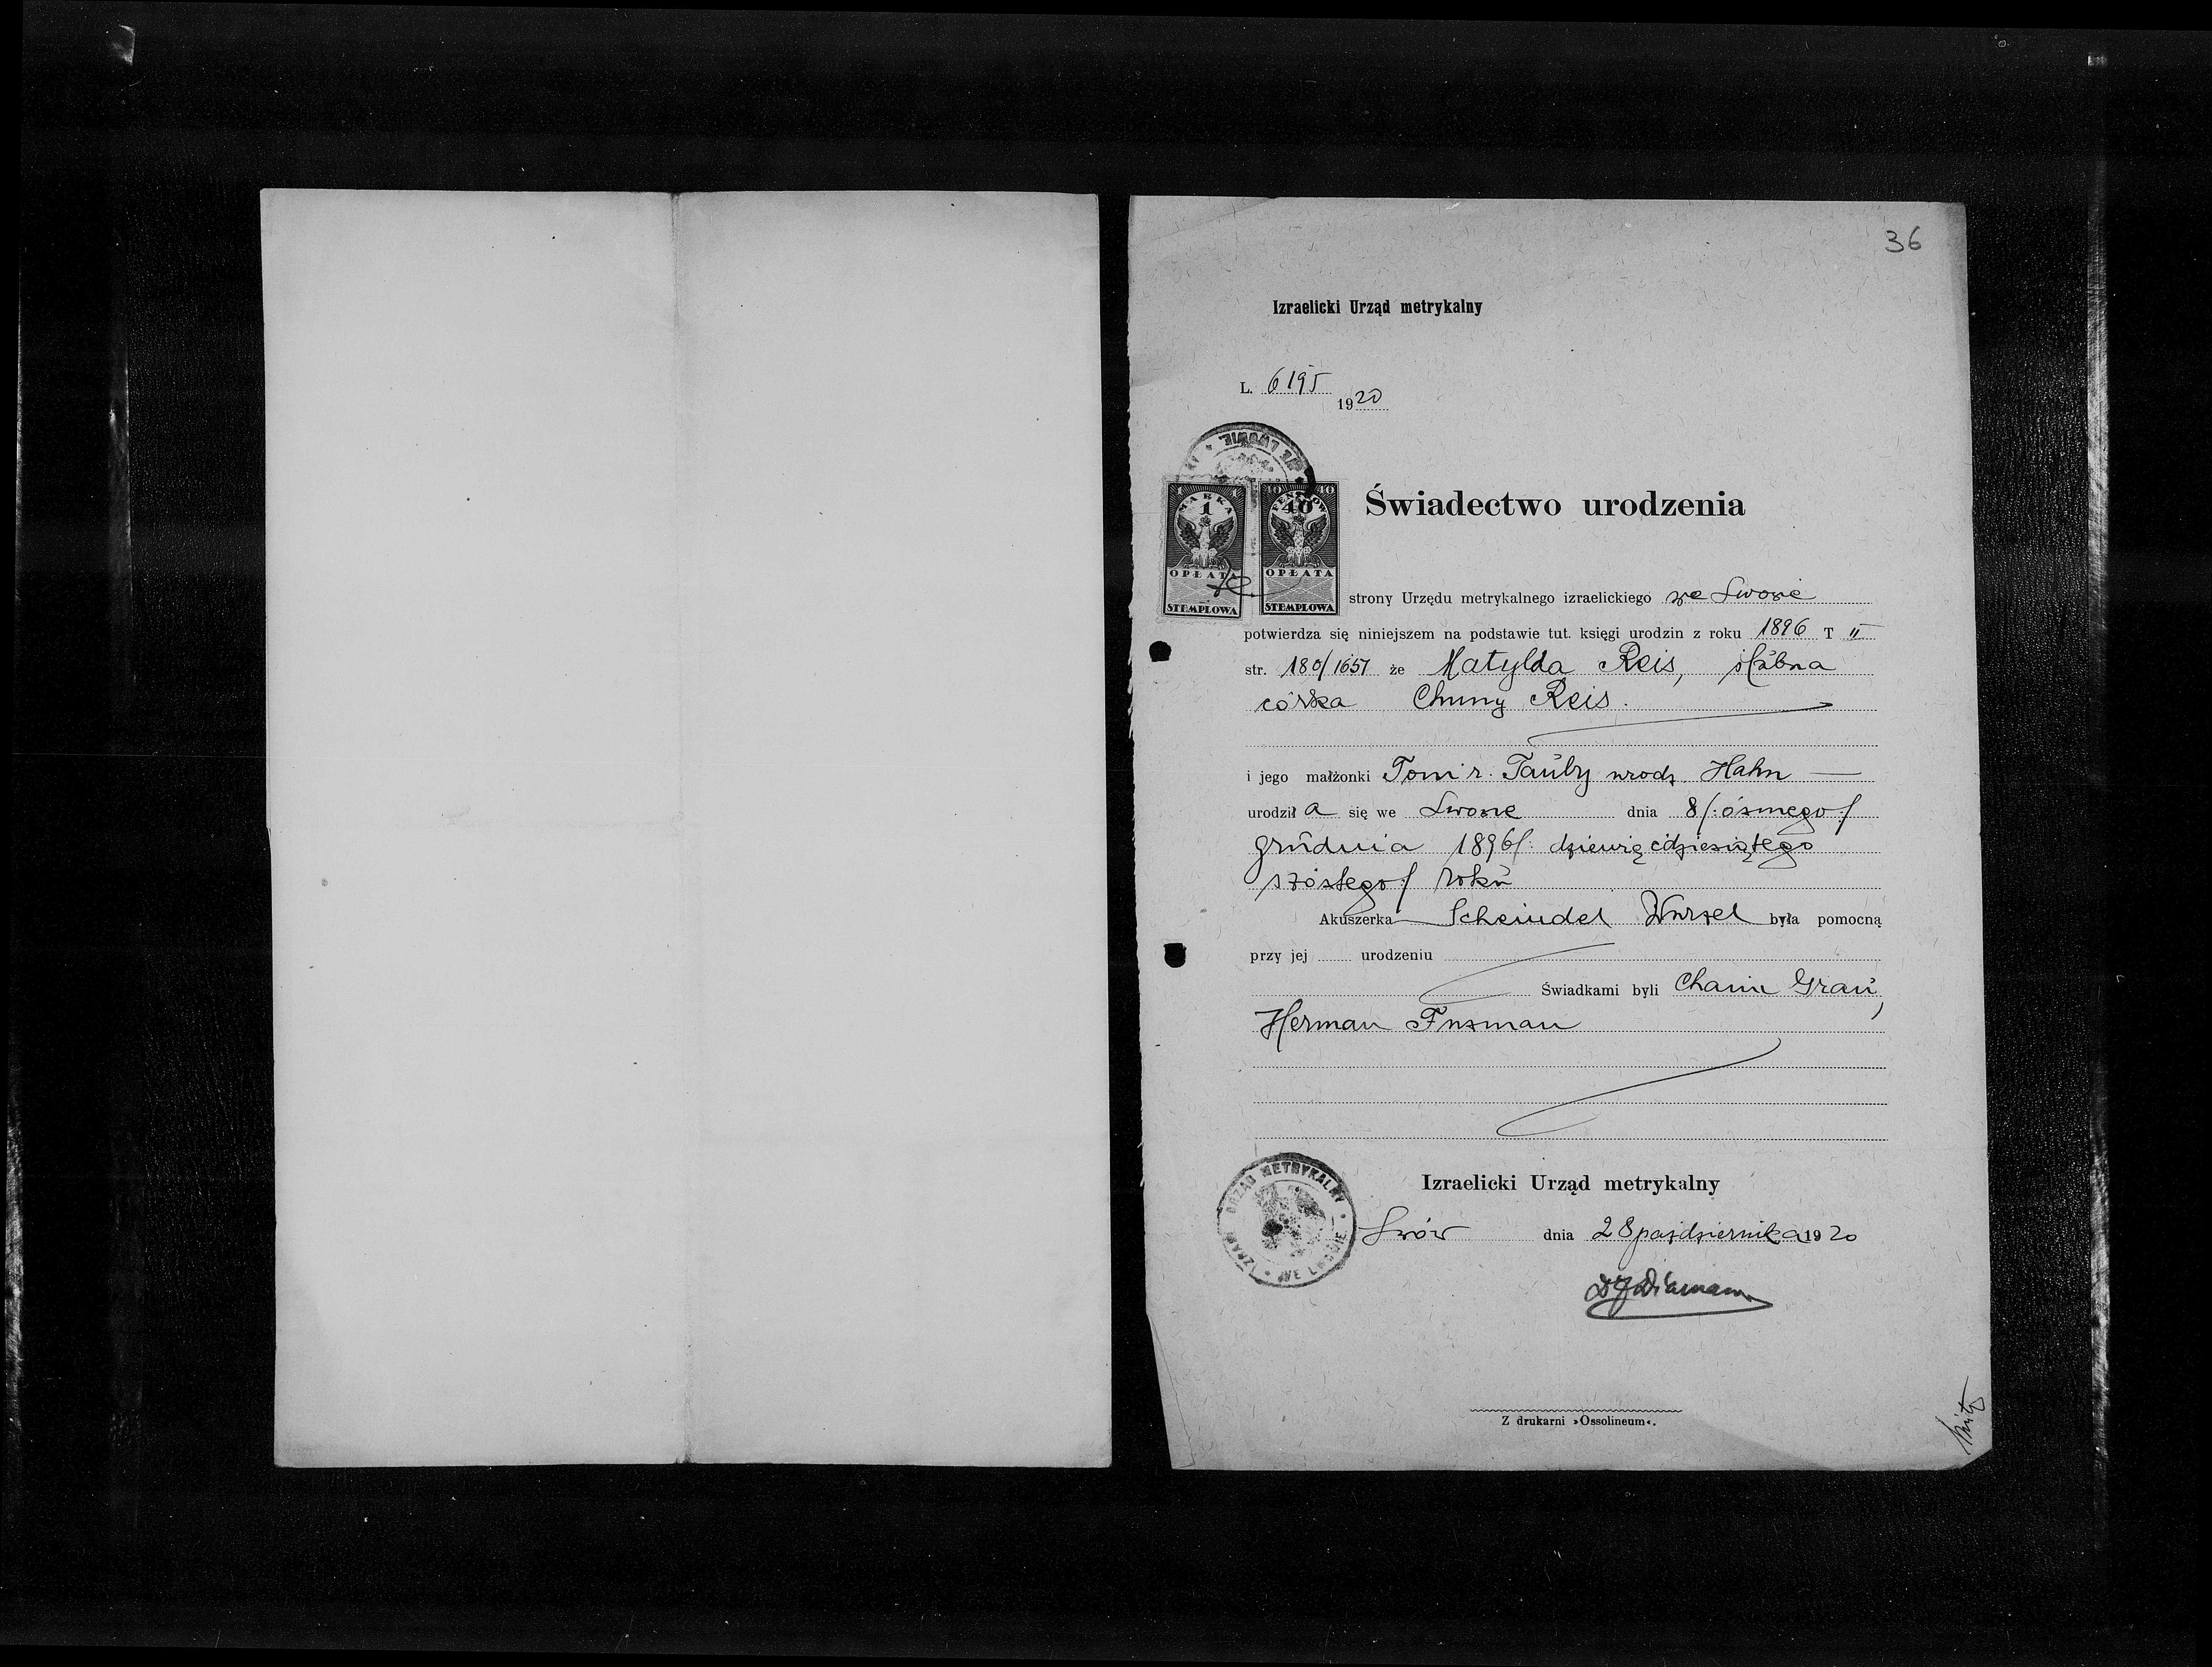 36
Izraelicki Urząd metrykalny
L. 6195
1920
WE LWOWIE
1 MARKA 1
1
OPŁATA
STEMPLOWA
40 FENIGÓW 40
40
OPŁATA
STEMPLOWA
Świadectwo urodzenia
strony Urzędu metrykalnego izraelickiego we Lwowie
potwierdza się niniejszem na podstawie tut. księgi urodzin z roku 1896 T II
str. 180/1651 że Matylda Reis, ślubna
córka Chuny Reis.
i jego małżonki Toni r. Tauby urodz. Hahn —
urodził a się we Lwowie dnia 8/: ósmego :/
grudnia 1896/: dziewięćdziesiątego
szóstego :/ roku
Akuszerka Scheindel Wurzel była pomocną
przy jej urodzeniu
Świadkami byli Chaim Grau,
Herman Fusman
IZRAEL. URZĄD METRYKALNY • WE LWOWIE •
Izraelicki Urząd metrykalny
Lwów dnia 28 października 1920
Z drukarni »Ossolineum«.